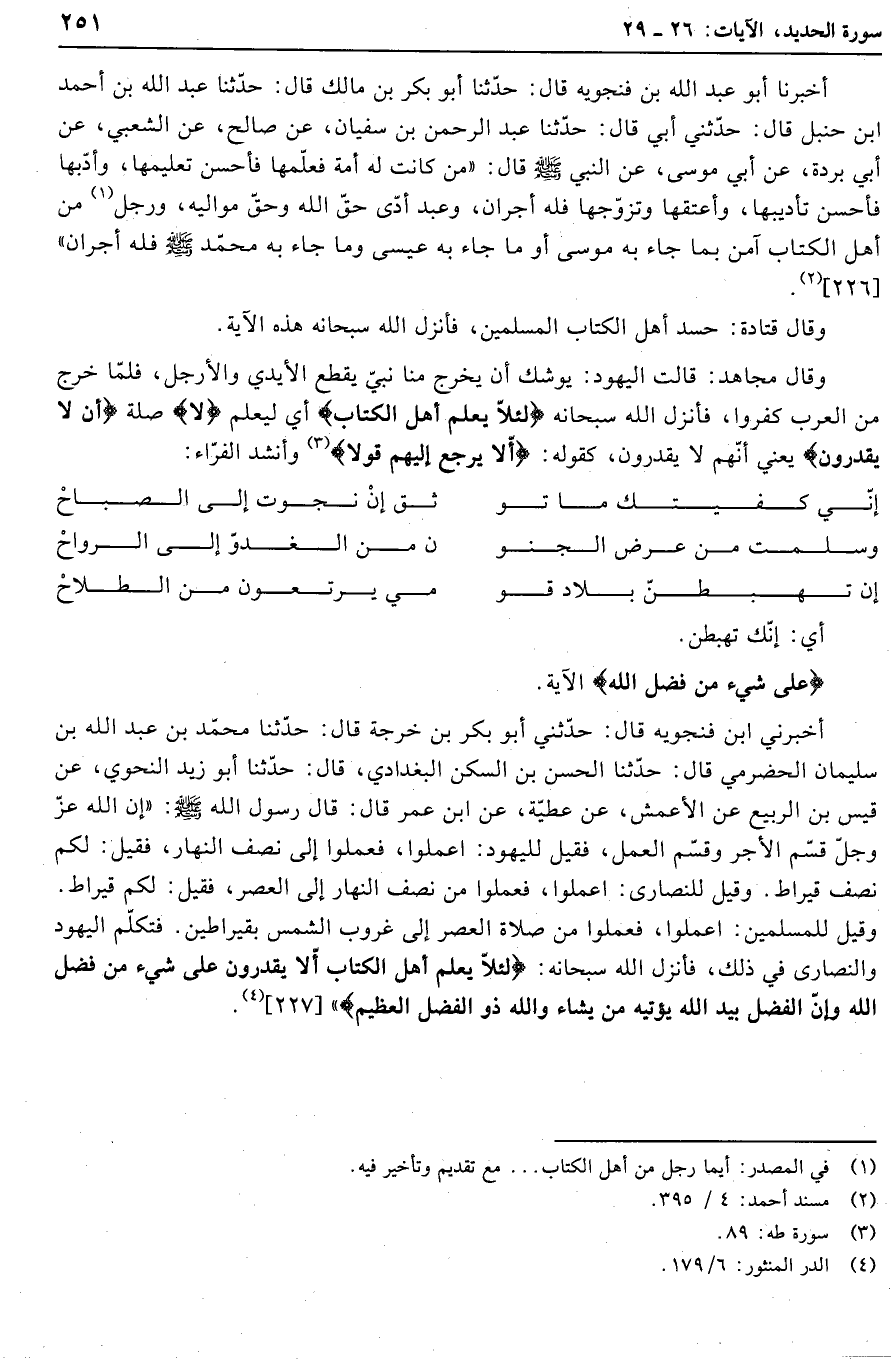 سورة الحديد، الآيات: ٢٦ ـ ٢٩ ٢٥١
أخبرنا أبو عبد الله بن فنجويه قال: حدّثنا أبو بكر بن مالك قال: حدّثنا عبد الله بن أحمد
ابن حنبل قال: حدّثني أبي قال: حدّثنا عبد الرحمن بن سفيان، عن صالح، عن الشعبي، عن
أبي بردة، عن أبي موسى، عن النبي ﷺ قال: «من كانت له أمة فعلّمها فأحسن تعليمها، وأدّبها
فأحسن تأديبها، وأعتقها وتزوّجها فله أجران، وعبد أدّى حقّ الله وحقّ مواليه، ورجل(١) من
أهل الكتاب آمن بما جاء به موسى أو ما جاء به عيسى وما جاء به محمّد ﷺ فله أجران»
[٢٢٦](٢).
وقال قتادة: حسد أهل الكتاب المسلمين، فأنزل الله سبحانه هذه الآية.
وقال مجاهد: قالت اليهود: يوشك أن يخرج منا نبيّ يقطع الأيدي والأرجل، فلمّا خرج
من العرب كفروا، فأنزل الله سبحانه ﴿لئلاّ يعلم أهل الكتاب﴾ أي ليعلم ﴿لا﴾ صلة ﴿أن لا
يقدرون﴾ يعني أنّهم لا يقدرون، كقوله: ﴿ألا يرجع إليهم قولا﴾(٣) وأنشد الفرّاء:
إنّي كفيتك ما تو ثق إنْ نجوت إلى الصباحْ
وسلمت من عرض الجنو ن من الغدوّ إلى الرواحْ
إن تهبطنّ بلاد قو مي يرتعون من الطلاحْ
أي: إنّك تهبطن.
﴿على شيء من فضل الله﴾ الآية.
أخبرني ابن فنجويه قال: حدّثني أبو بكر بن خرجة قال: حدّثنا محمّد بن عبد الله بن
سليمان الحضرمي قال: حدّثنا الحسن بن السكن البغدادي، قال: حدّثنا أبو زيد النحوي، عن
قيس بن الربيع عن الأعمش، عن عطيّة، عن ابن عمر قال: قال رسول الله ﷺ: «إن الله عزّ
وجلّ قسّم الأجر وقسّم العمل، فقيل لليهود: اعملوا، فعملوا إلى نصف النهار، فقيل: لكم
نصف قيراط. وقيل للنصارى: اعملوا، فعملوا من نصف النهار إلى العصر، فقيل: لكم قيراط.
وقيل للمسلمين: اعملوا، فعملوا من صلاة العصر إلى غروب الشمس بقيراطين. فتكلّم اليهود
والنصارى في ذلك، فأنزل الله سبحانه: ﴿لئلاّ يعلم أهل الكتاب ألا يقدرون على شيء من فضل
الله وإنّ الفضل بيد الله يؤتيه من يشاء والله ذو الفضل العظيم﴾» [٢٢٧](٤).
(١) في المصدر: أيما رجل من أهل الكتاب... مع تقديم وتأخير فيه.
(٢) مسند أحمد: ٤ / ٣٩٥.
(٣) سورة طه: ٨٩.
(٤) الدر المنثور: ٦/ ١٧٩.